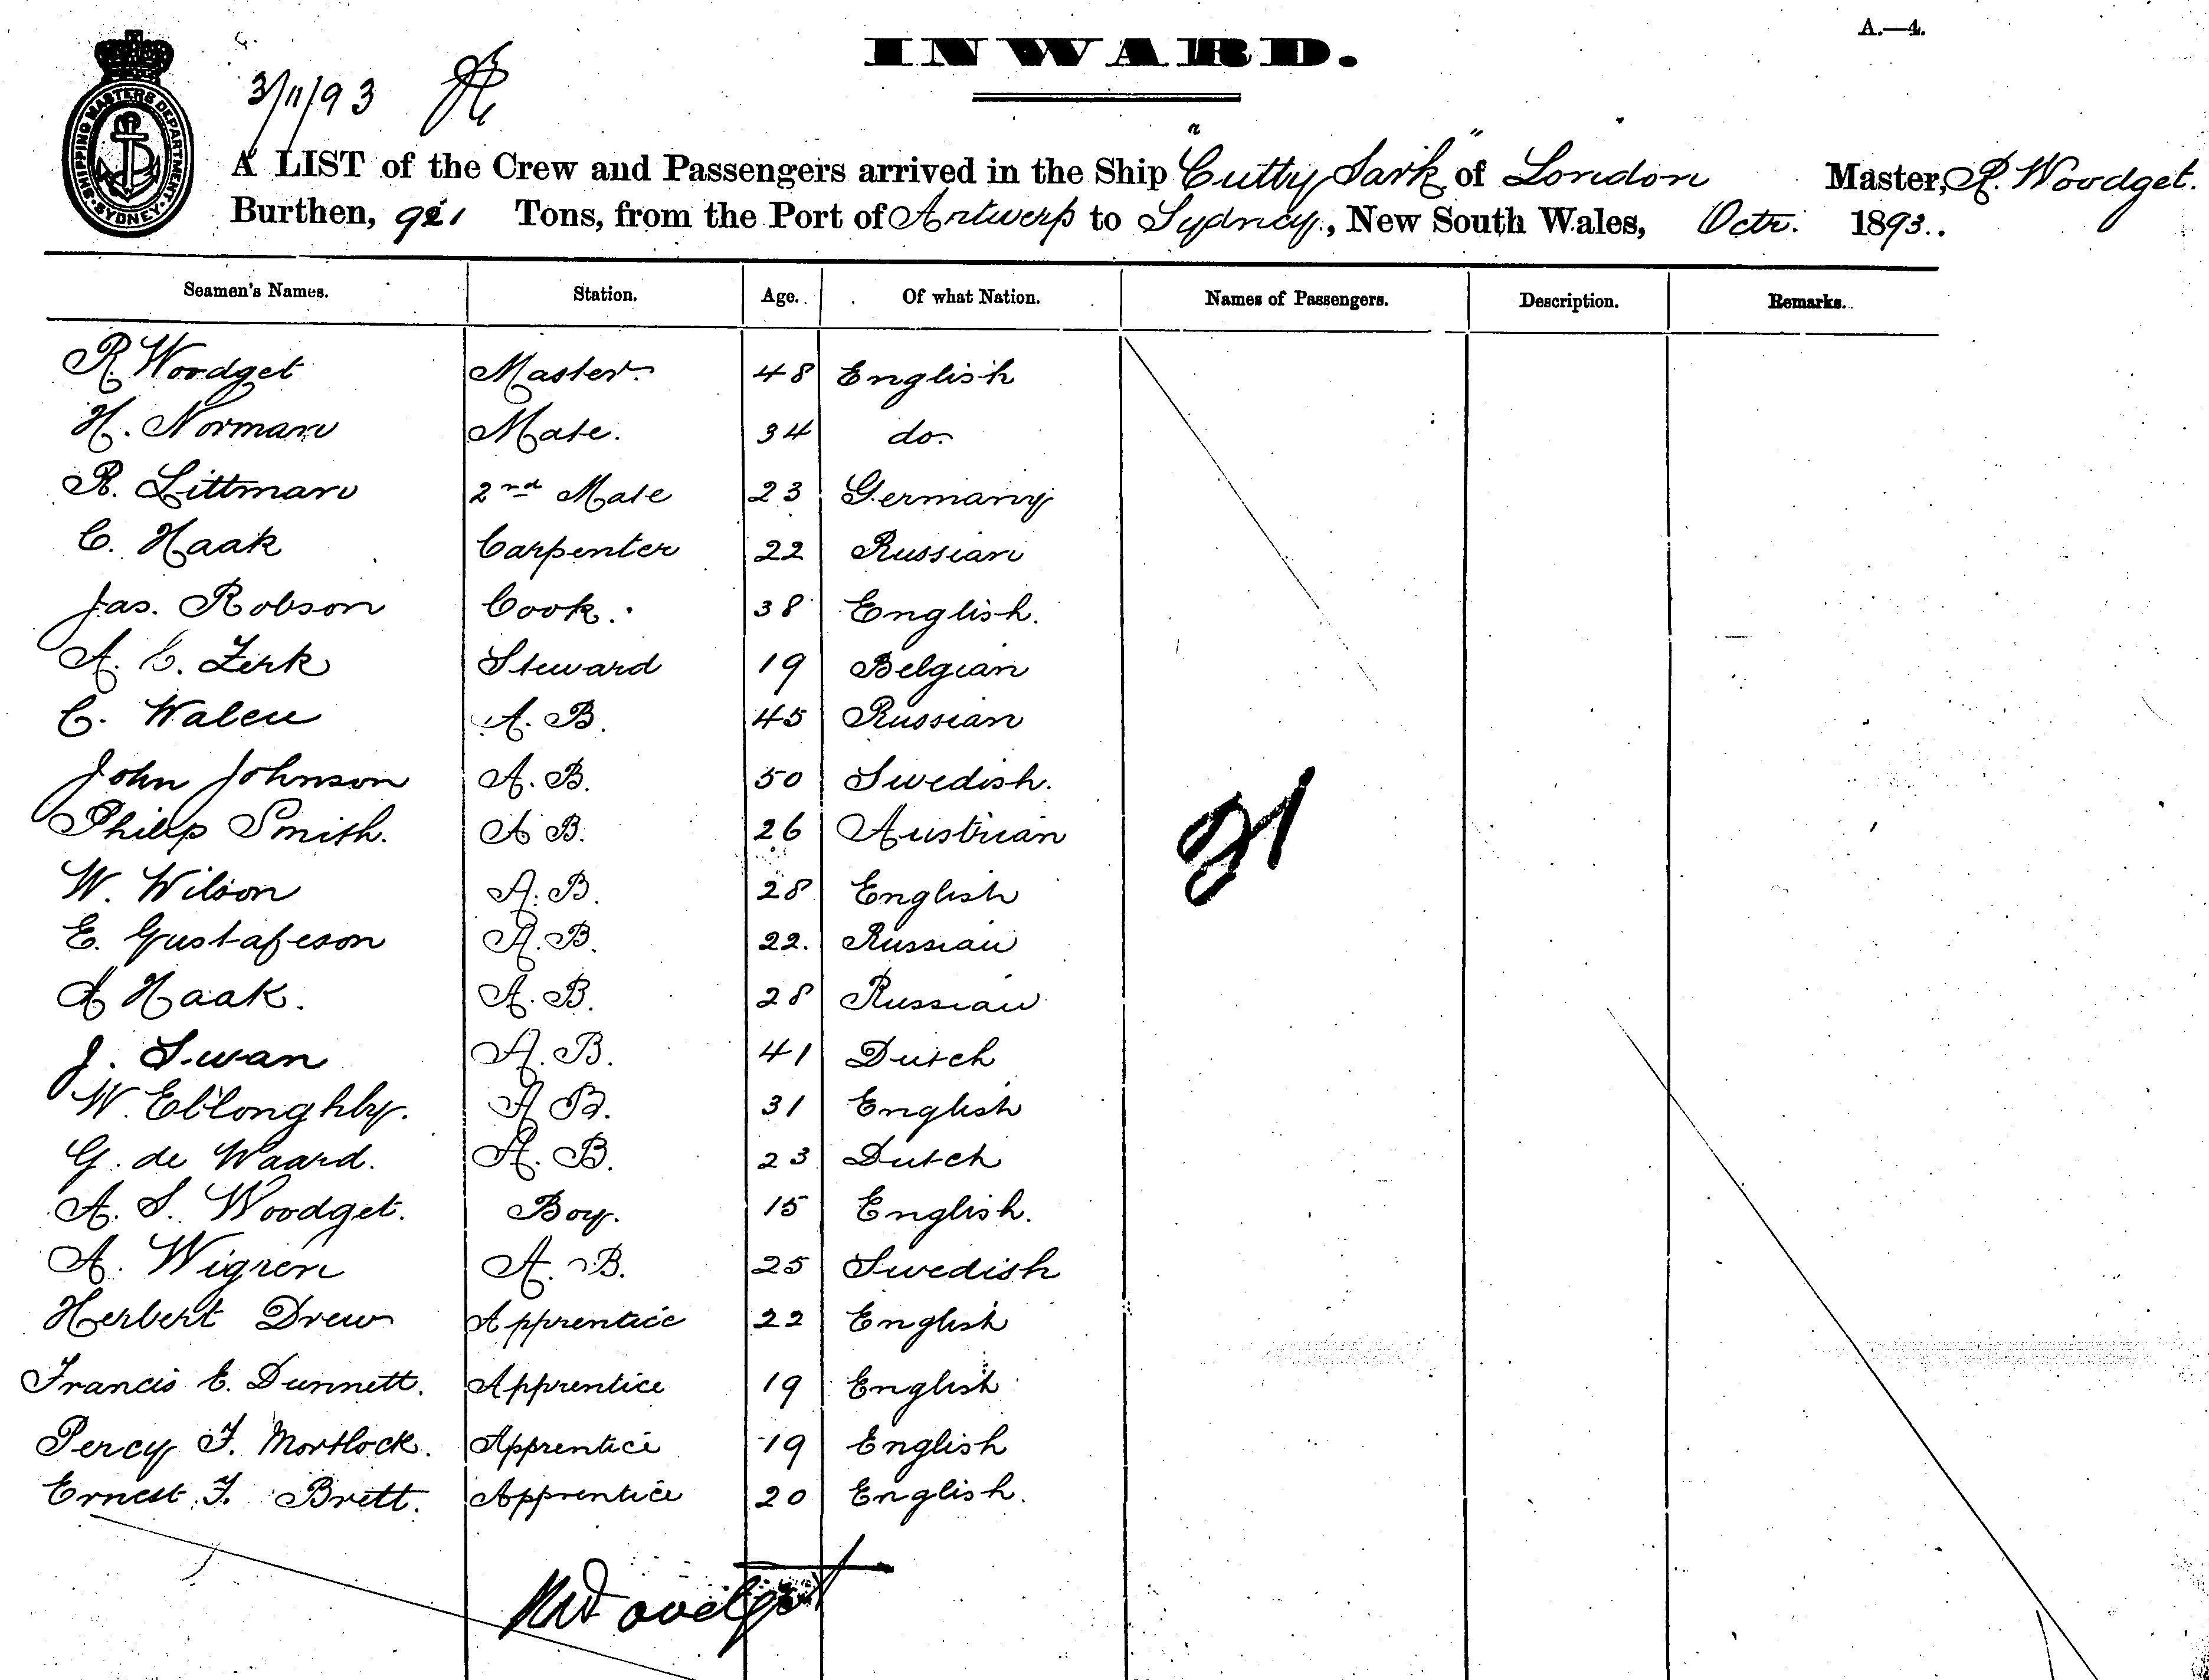 A.—4.
INWARD.
3/11/93
SHIPPING MASTERS DEPARTMENT SYDNEY
A LIST of the Crew and Passengers arrived in the Ship "Cutty Sark" of London Master, R. Woodget.
Burthen, 921 Tons, from the Port of Antwerp to Sydney, New South Wales, Octr. 1893.
Seamen's Names. Station. Age. Of what Nation. Names of Passengers. Description. Remarks.
R. Woodget Master. 48 English
H. Norman Mate. 34 do.
R. Littman 2nd Mate 23 Germany
C. Haak Carpenter 22 Russian
Jas. Robson Cook. 38 English.
A. C. Zerk Steward 19 Belgian
C. Waleu A. B. 45 Russian
John Johnson A. B. 50 Swedish.
Philip Smith. A B. 26 Austrian
W. Wilson A. B. 28 English
E. Gustafeson A. B. 22. Russian
A Haak. A. B. 28 Russian
J. Swan A. B. 41 Dutch
W. Ellonghby. A B. 31 English
G. de Waard. A. B. 23 Dutch
A. S. Woodget. Boy. 15 English.
A. Wigren A. B. 25 Swedish
Herbert Drew Apprentice 22 English
Francis E. Dunnett. Apprentice 19 English
Percy F. Mortlock. Apprentice 19 English
Ernest F. Brett. Apprentice 20 English.
21
R Woodget